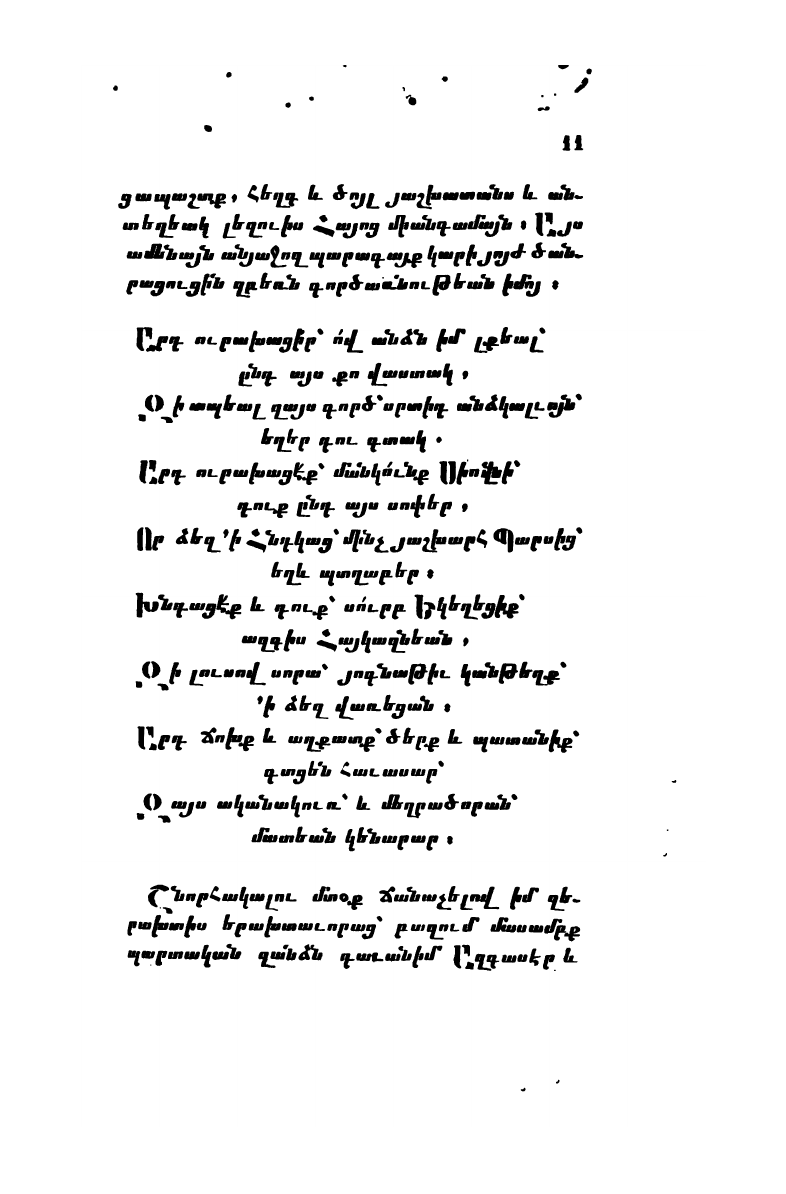 11
ցապաշտք, հեղգ և ծոյլ յաշխատանս և ան-
տեղեակ լեզուիս Հայոց միանգամայն ։ Այս
ամենայն անյաջող պարագայք կարի յոյժ ծան-
րացուցին զբեռն գործառնութեան իմոյ ։
Արդ ուրախացի՛ր՝ ո՛վ անձն իմ լքեալ՝
ընդ այս քո վաստակ ,
Զի տպեալ զայս գործ՝ սրտիդ անձկալւոյն՝
եղեր դու գտակ .
Արդ ուրախացէ՛ք՝ մանկո՛ւնք Սիոնի՝
դուք ընդ այս սոփեր ,
Որ ձեզ ՚ի Հնդկաց՝ մինչ յաշխարհ Պարսից՝
եղև պտղաբեր ։
Խնդացէ՛ք և դուք՝ սո՛ւրբ Եկեղեցիք՝
ազգիս Հայկազնեան ,
Զի լուսով սորա՝ յոգնաթիւ կանթեղք՝
՚ի ձեզ վառեցան ։
Արդ ճոխք և աղքատք՝ ծերք և պատանիք՝
գտցեն հաւասար՝
Զայս ականակուռ՝ և մեղրածորան՝
մատեան կենարար ։
Շնորհակալու մտօք ճանաչելով իմ զե-
րախտիս երախտաւորաց՝ բազում մասամբք
պարտական զանձն դաւանիմ Ազգասէր և